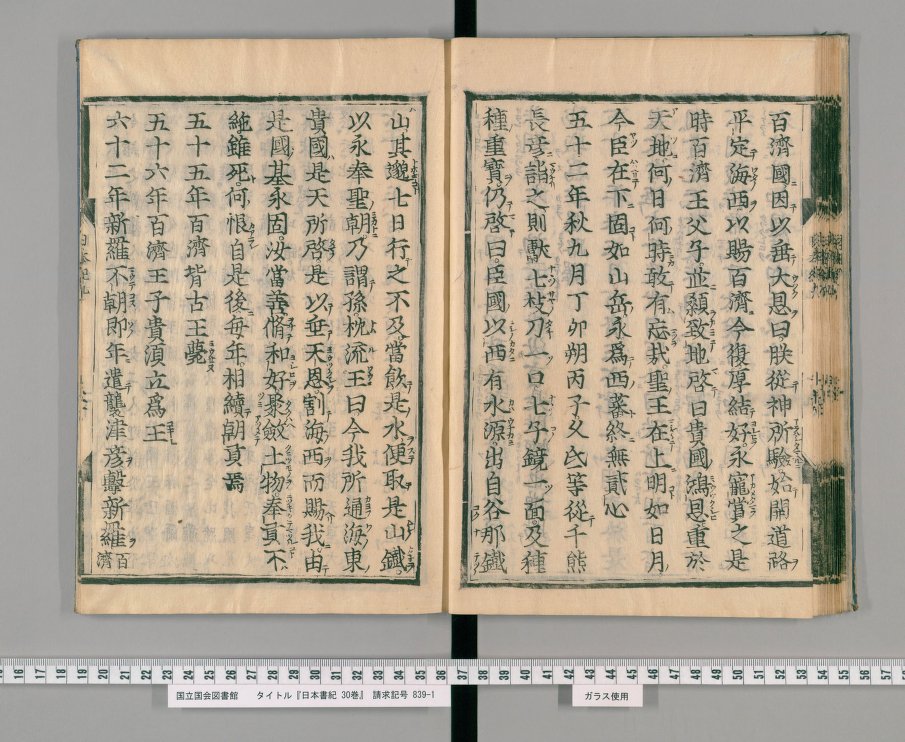 百濟國因以垂大恩曰朕從神所驗始開道路
平定海西以賜百濟今復厚結好永寵賞之是
時百濟王父子並顙致地啓曰貴國鴻恩重於
天地何日何時敢有忘哉聖王在上明如日月
今臣在下固如山岳永爲西蕃終無貳心
五十二年秋九月丁卯朔丙子久氐等從千熊
長彦詣之則獻七枝刀一口七子鏡一面及種
種重寶仍啓曰臣國以西有水源出自谷那鐵
山其邈七日行之不及當飲是水便取是山鐵
以永奉聖朝乃謂孫枕流王曰今我所通海東
貴國是天所啓是以垂天恩割海西而賜我由
是國基永固汝當善脩和好聚斂土物奉貢不
絶雖死何恨自是後每年相續朝貢焉
五十五年百濟背古王薨
五十六年百濟王子貴須立爲王
六十二年新羅不朝即年遣襲津彦擊新羅百濟
16 17 18 19 20 21 22 23 24 25 26 27 28 29 30 31 32 33 34 35 36 37 38 39 40 41 42 43 44 45 46 47 48 49 50 51 52 53 54 55 56 57
国立国会図書館 タイトル『日本書紀 30巻』 請求記号 839-1
ガラス使用